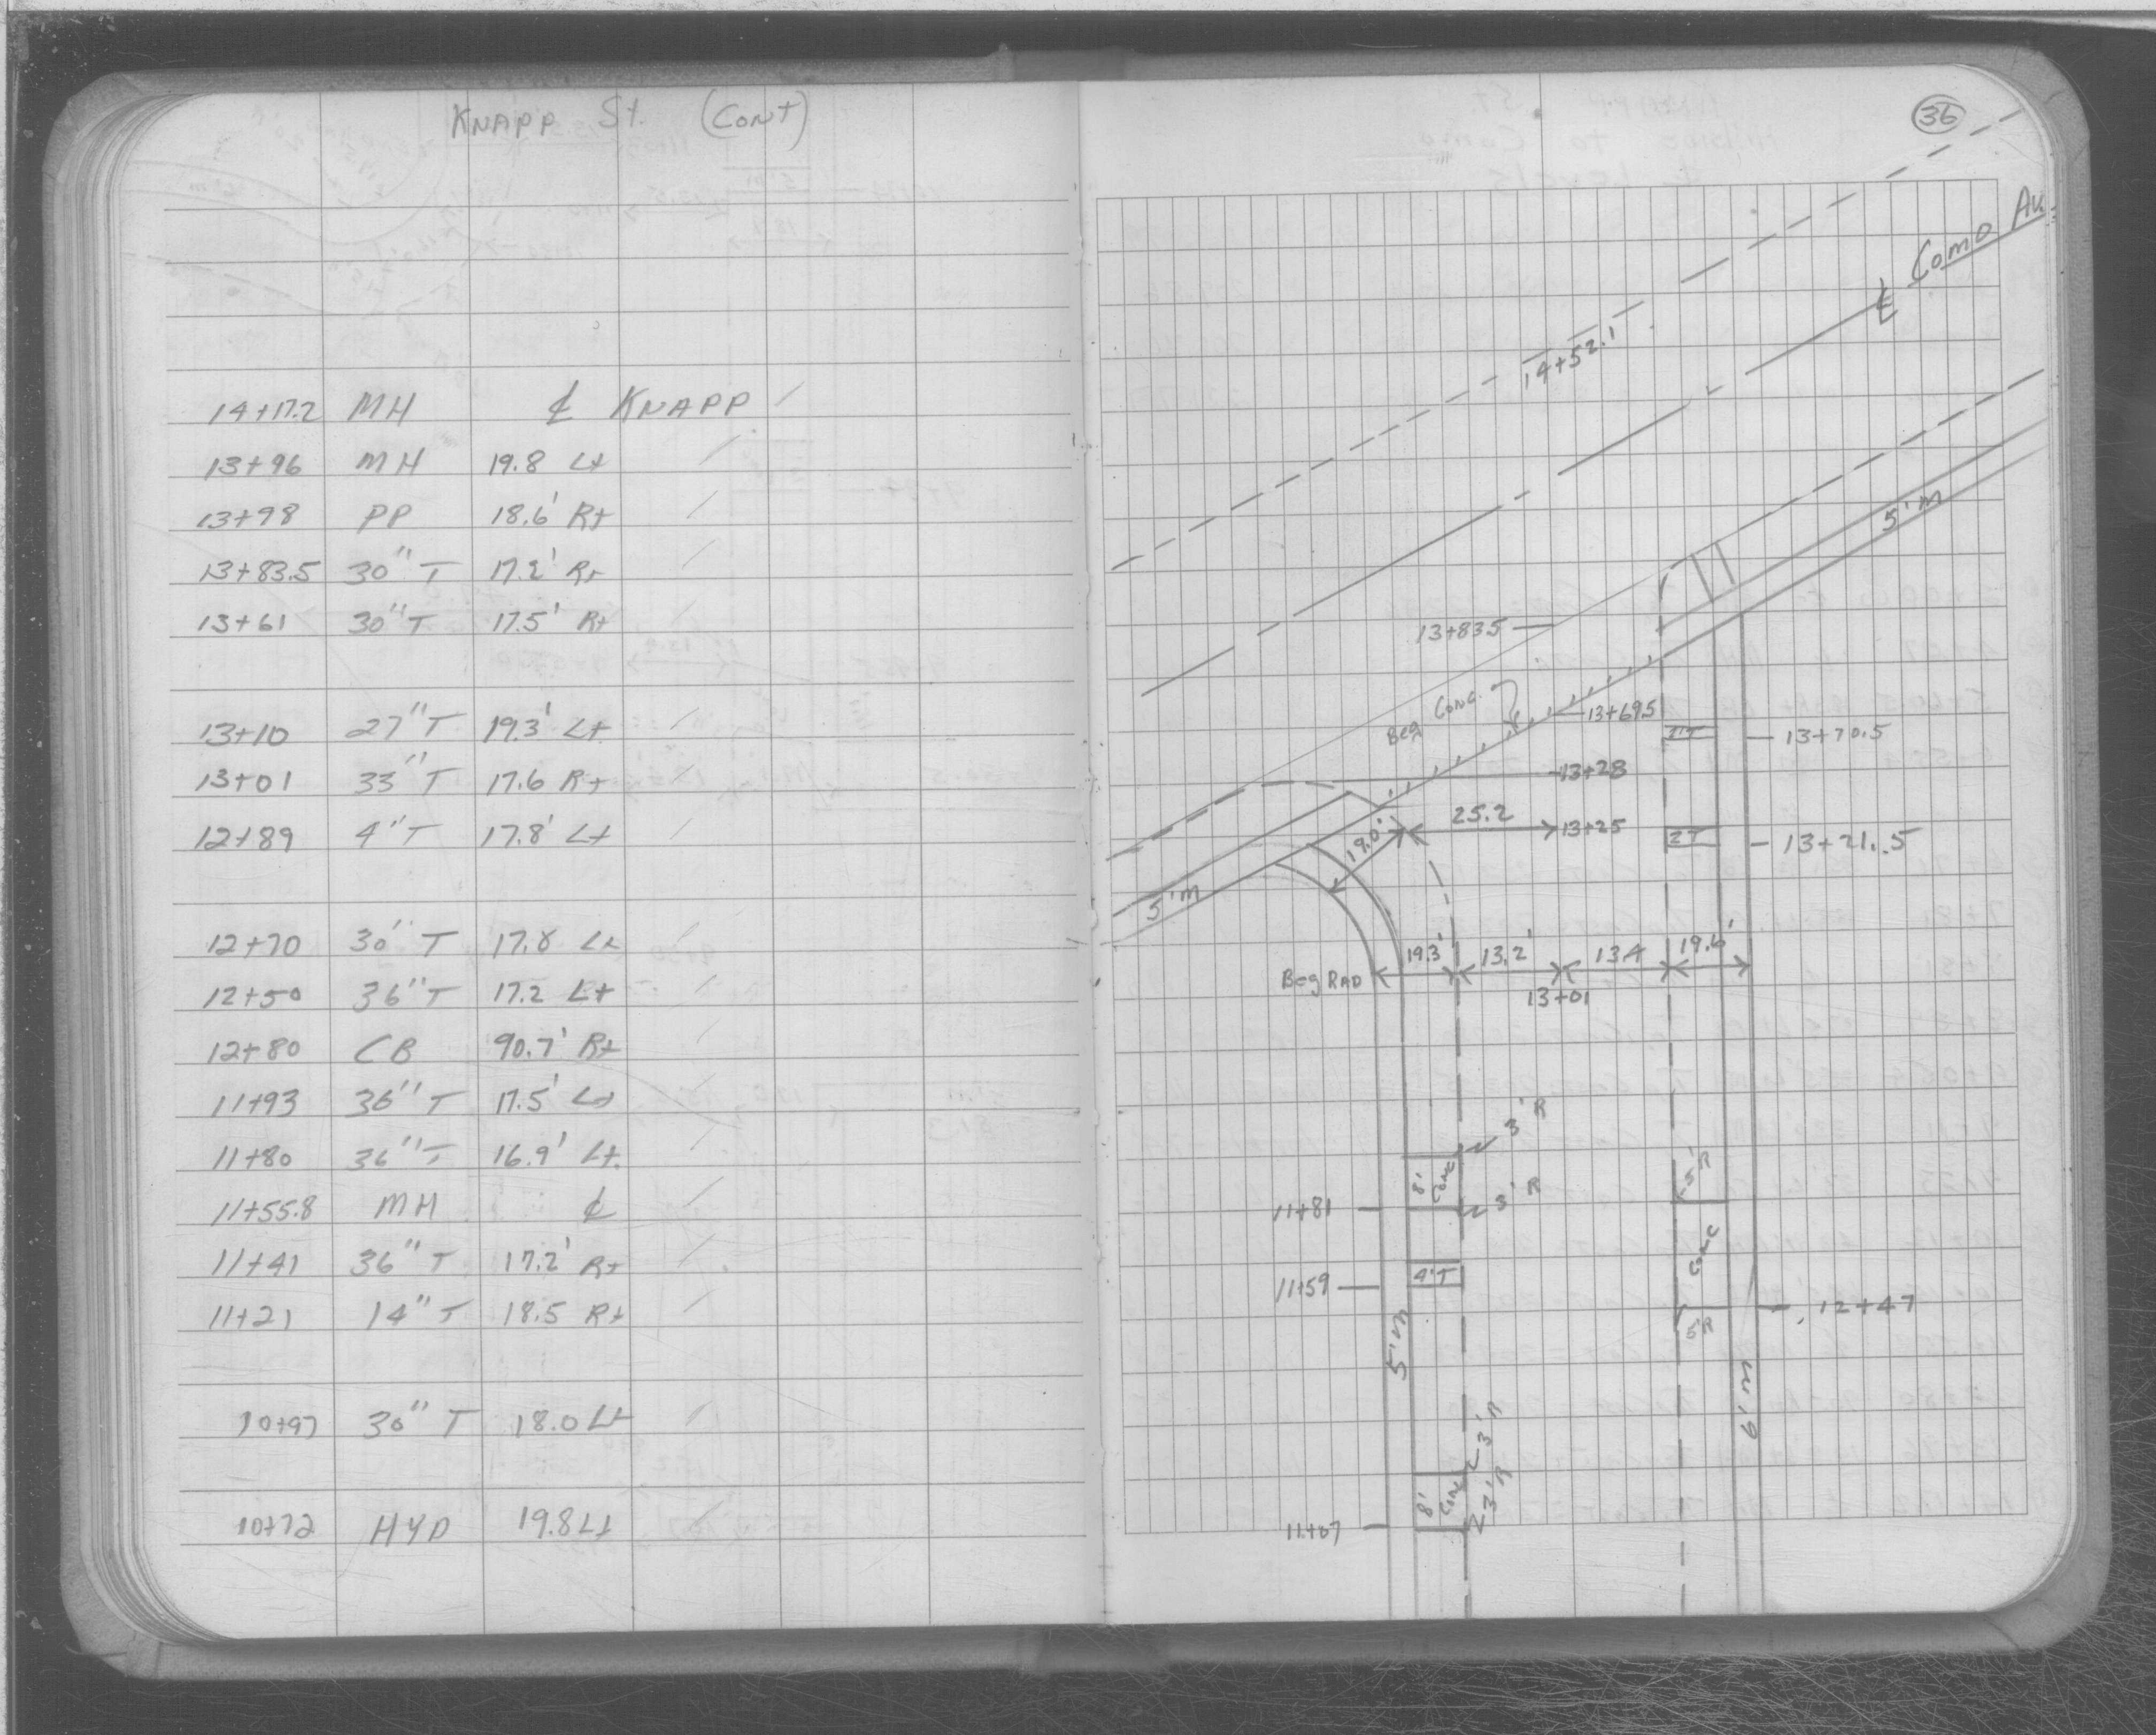 KNAPP St. (Cont)
14+17.2 MH ℄ KNAPP /
13+96 MH 19.8 Lt /
13+98 PP 18.6' Rt /
13+83.5 30" T 17.2' Rt /
13+61 30" T 17.5' Rt /
13+10 27" T 19.3' Lt /
13+01 33" T 17.6 Rt /
12+89 4" T 17.8' Lt /
12+70 30" T 17.8 Lt /
12+50 36" T 17.2 Lt /
12+80 CB 90.7' Rt /
11+93 36" T 17.5' Lt /
11+80 36" T 16.9' Lt. /
11+55.8 MH ℄ /
11+41 36" T 17.2' Rt /
11+21 14" T 18.5 Rt /
10+97 30" T 18.0 Lt /
10+72 HYD 19.8 Lt /
36
℄ Como Av.
14+52.1
5'M
13+83.5
Beg Conc.
13+69.5
13+70.5
13+28
25.2
13+25
2'T
13+21.5
19.0'
5'M
Beg RAD 19.3' 13.2' 13.4 19.6'
13+01
3'R
8' Conc
5'R
11+81
3'R
Conc
4'T
11+59
5'R
12+47
5'M
6'M
3'R
8' Conc
3'R
11+07